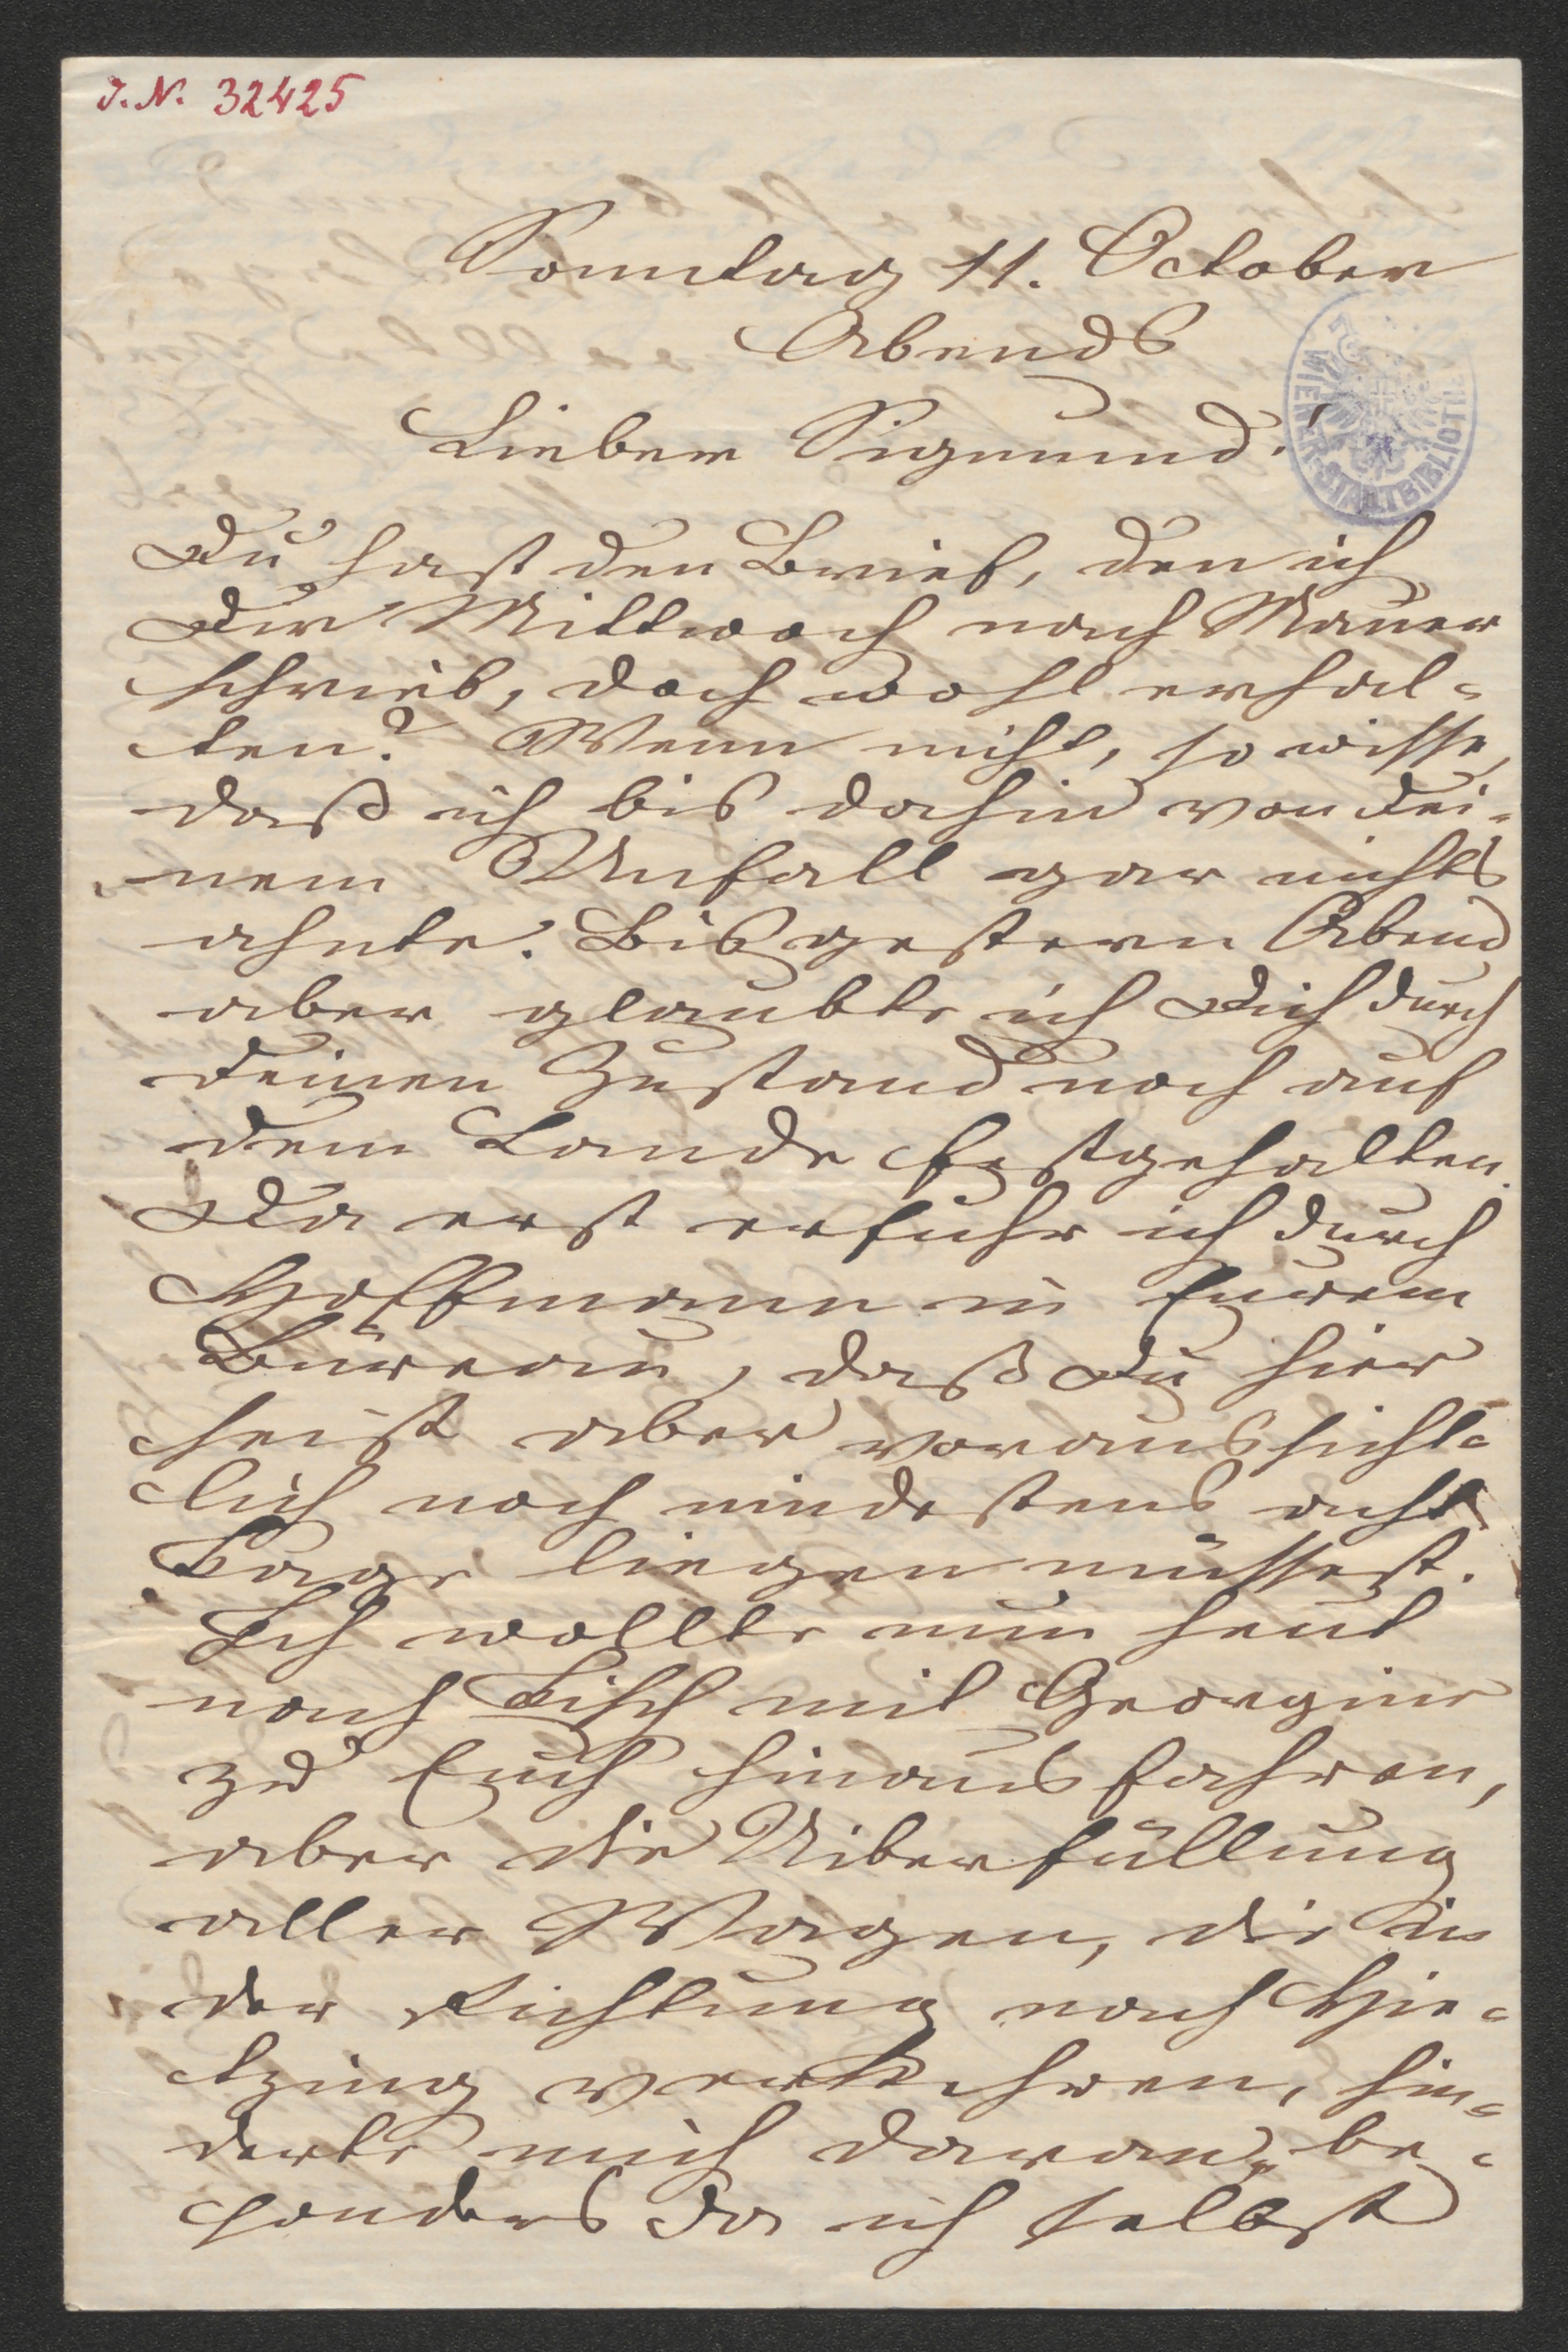 J. N. 32425
Sonntag 11. October
Abends
Lieber Sigmund!
WIENER STADTBIBLIOTHEK
Du hast den Brief, den ich
Dir Mittwoch nach Mauer
schrieb, doch wohl erhal-
ten? Wenn nicht, so wisse,
daß ich bis dahin von Dei-
nem Unfall gar nichts
ahnte. Bis gestern Abend
aber glaubte ich Dich durch
Deinen Zustand noch auf
dem Lande festgehalten.
Da erst erfuhr ich durch
Hoffmann in Eurem
Büreau, daß Du hier
seist aber voraussicht-
lich noch mindestens acht
Tage liegen müssest.
Ich wollte nun heut
nach Tisch mit Georgine
zu Euch hinausfahren,
aber die Uiberfüllung
aller Wagen, die in
der Richtung nach Hie-
tzing verkehren, hin-
derte mich daran, be-
sonders da ich selbst